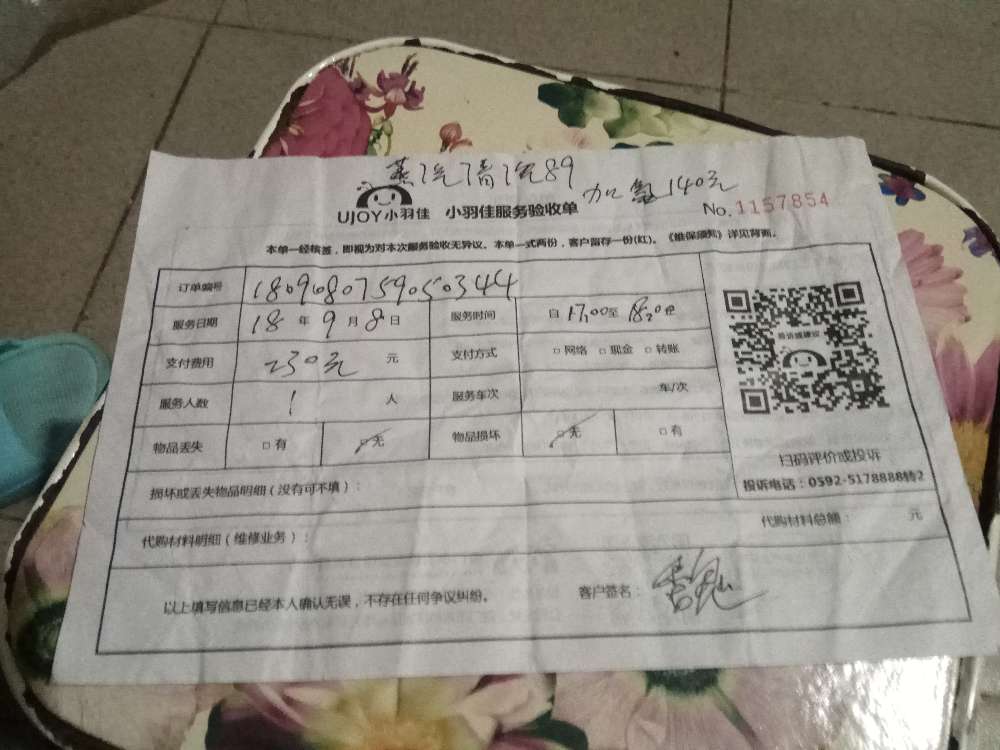 蒸汽清洗89
加氢140元
UJOY小羽佳 小羽佳服务验收单
No.1157854
本单一经核签，即视为对本次服务验收无异议、本单一式两份，客户留存一份(红)。《维保须知》详见背面。
订单编号 18090807595050344
服务日期 18 年 9 月 8 日 服务时间 自 17:00 至
支付费用 230元 元 支付方式 □网络 □现金 □转账
服务人数 1 人 服务车次 车/次
物品丢失 □有 □无 物品损坏 □无 □有
投诉或建议
扫码评价或投诉
投诉电话：0592-5178888转2
损坏或丢失物品明细（没有可不填）：
代购材料明细（维修业务）： 代购材料总额： 元
以上填写信息已经本人确认无误，不存在任何争议纠纷。 客户签名：